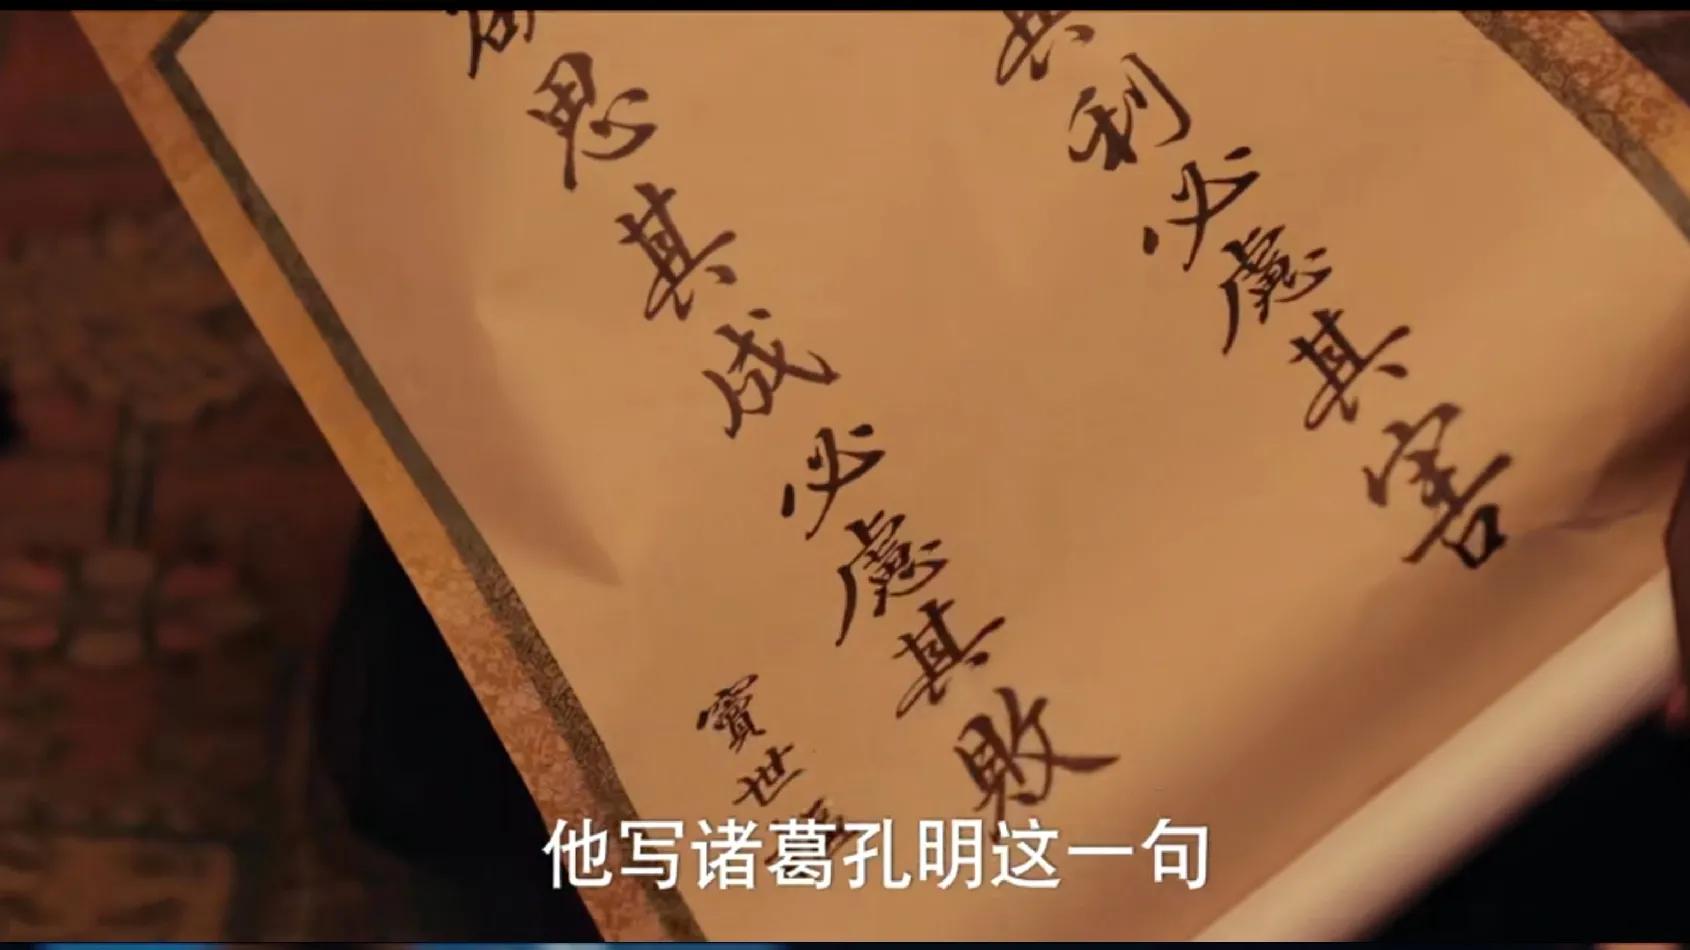 其利必慮其害
欲思其成必慮其敗
竇世
他写诸葛孔明这一句